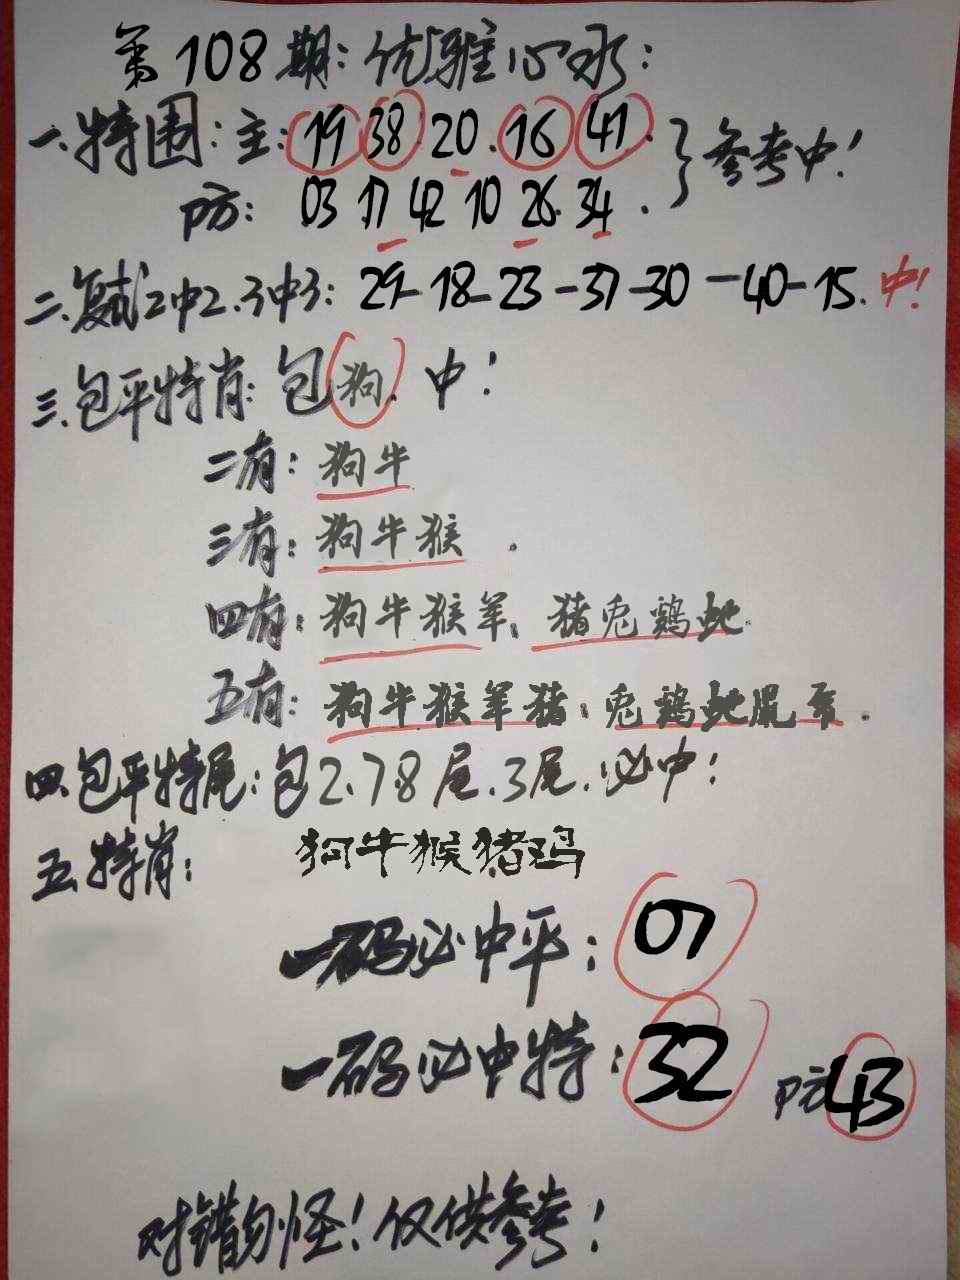 第108期：优雅心水：
一、特围：主：19 38 20.16 41.}参考中！
防：03 17 42 10 26.34.
二、复式2中2.3中3：29-18-23-37-30-40-15.中！
三、包平特肖：包狗.中！
二有：狗牛
三有：狗牛猴.
四有：狗牛猴羊、猪兔鸡蛇.
五有：狗牛猴羊猪：兔鸡蛇鼠.
四、包平特尾：包2.7.8尾.3尾.必中！
五、特肖：狗牛猴猪鸡
一码必中平：07
一码必中特：32 防43
对错勿怪！仅供参考！